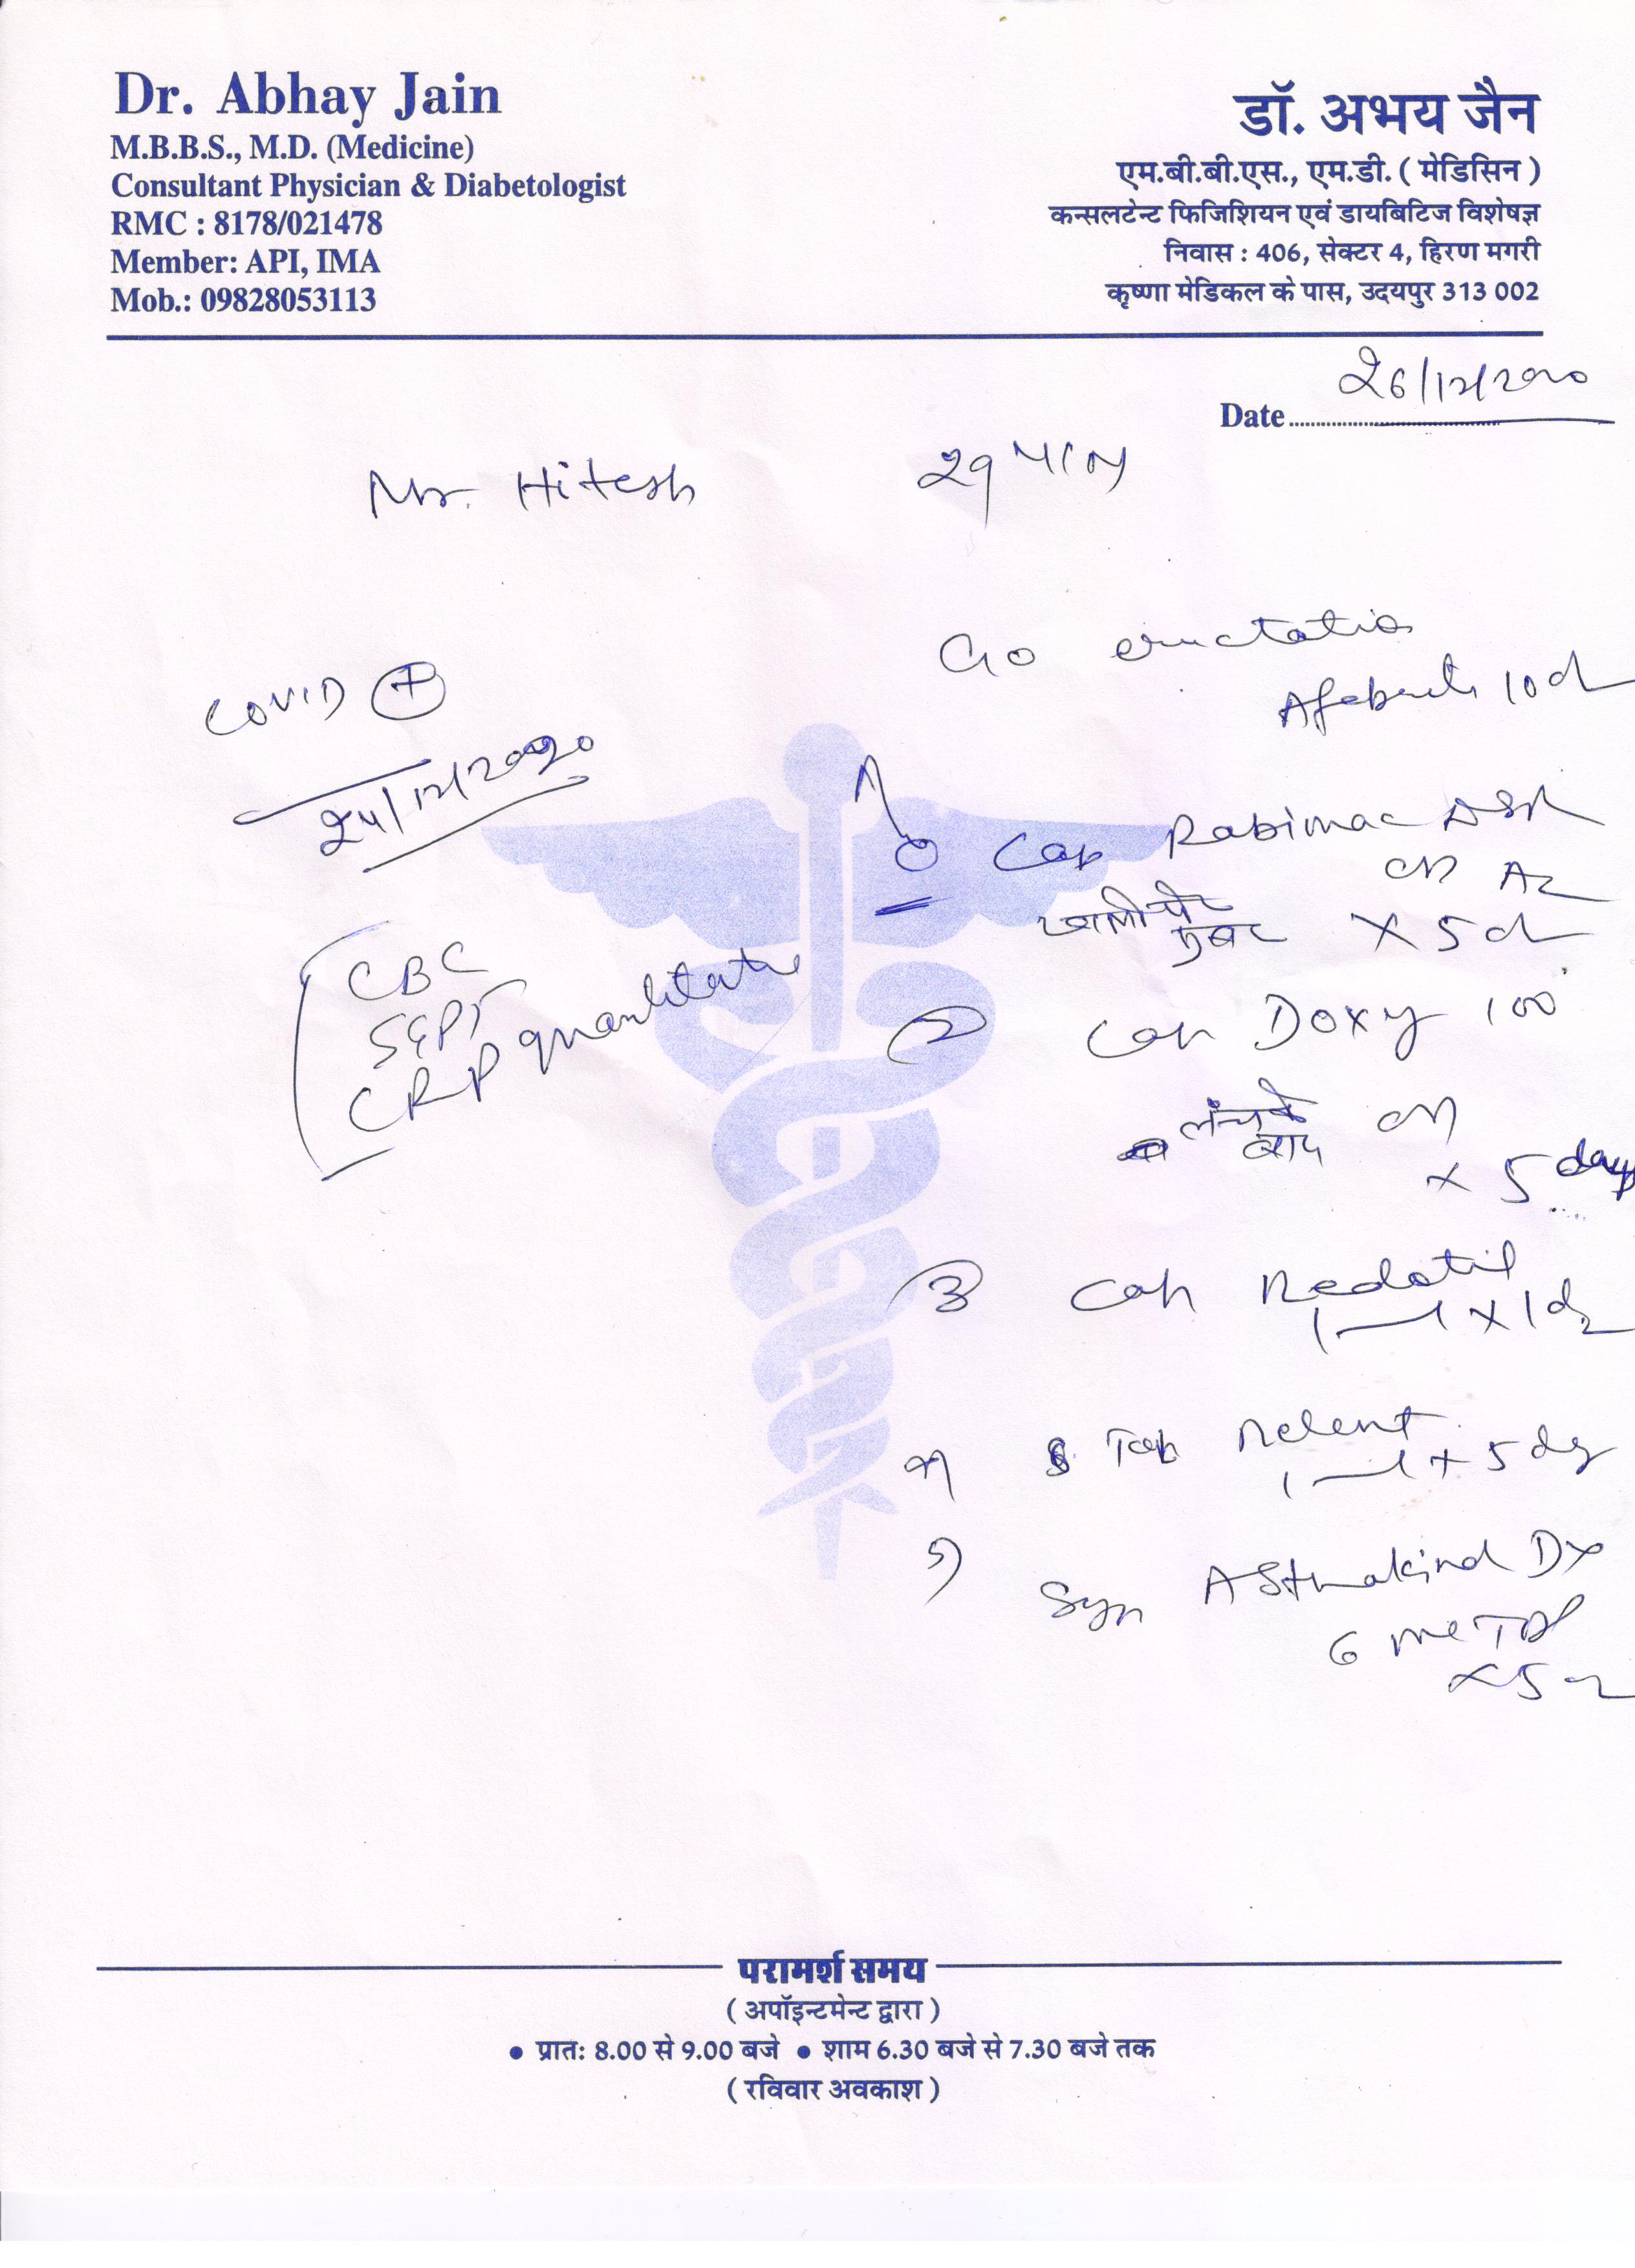 Dr. Abhay Jain
M.B.B.S., M.D. (Medicine)
Consultant Physician & Diabetologist
RMC : 8178/021478
Member: API, IMA
Mob.: 09828053113
डॉ. अभय जैन
एम.बी.बी.एस., एम.डी. ( मेडिसिन )
कन्सलटेन्ट फिजिशियन एवं डायबिटिज विशेषज्ञ
निवास : 406, सेक्टर 4, हिरण मगरी
कृष्णा मेडिकल के पास, उदयपुर 313 002
26/12/2020
Date
Mr. Hitesh 29
COVID +
24/12/2020
CBC
SGPT
CRP quantitative
C/o eructation
Afebrile 10 d
1 Cap Rabimac DSR
खाली पेट
सुबह X 5 d
2 Cap Doxy 100
लंच के
बाद
x 5 days
3 Cap Redotil
4) Tab Relent
1—1 x 5 dy
5) Syp Asthakind DX
6 ml TDS
x 5
परामर्श समय
( अपॉइन्टमेन्ट द्वारा )
• प्रातः 8.00 से 9.00 बजे • शाम 6.30 बजे से 7.30 बजे तक
( रविवार अवकाश )